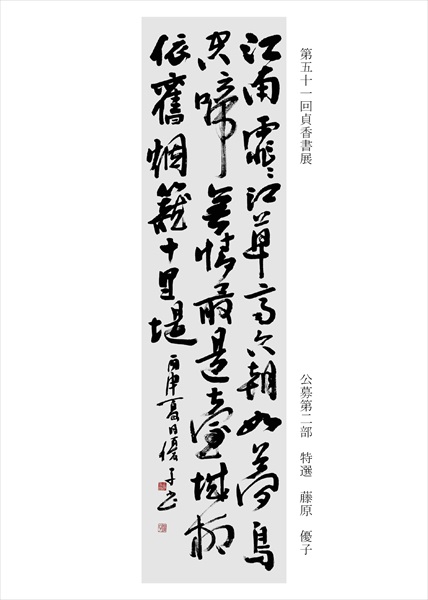 第五十一回貞香書展
公募第二部　特選　藤原　優子
江雨霏〻江草齊六朝如夢鳥
空啼無情最是臺城柳
依舊烟籠十里堤
丙申夏日優子書